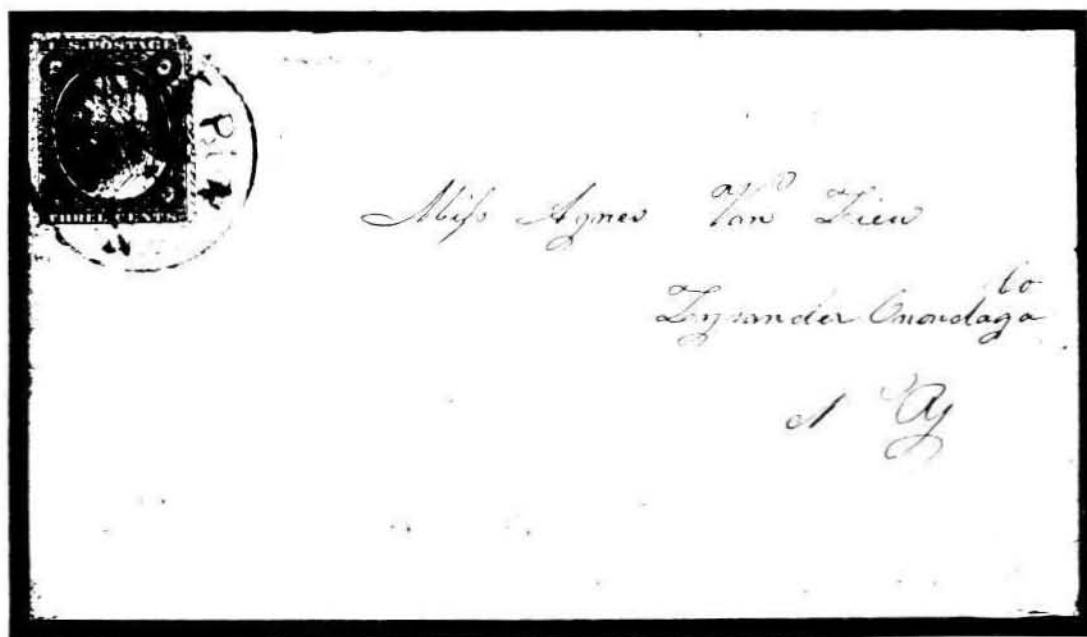 U.S. POSTAGE
THREE CENTS
Miss Agnes Van
Co
Lysander Onondaga
N Y